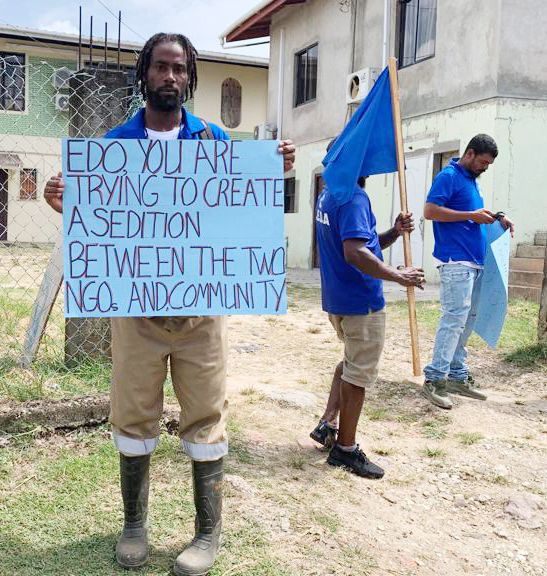 EDO, YOU ARE
TRYING TO CREATE
A SEDITION
BETWEEN THE TWO
NGOs AND, COMMUNITY